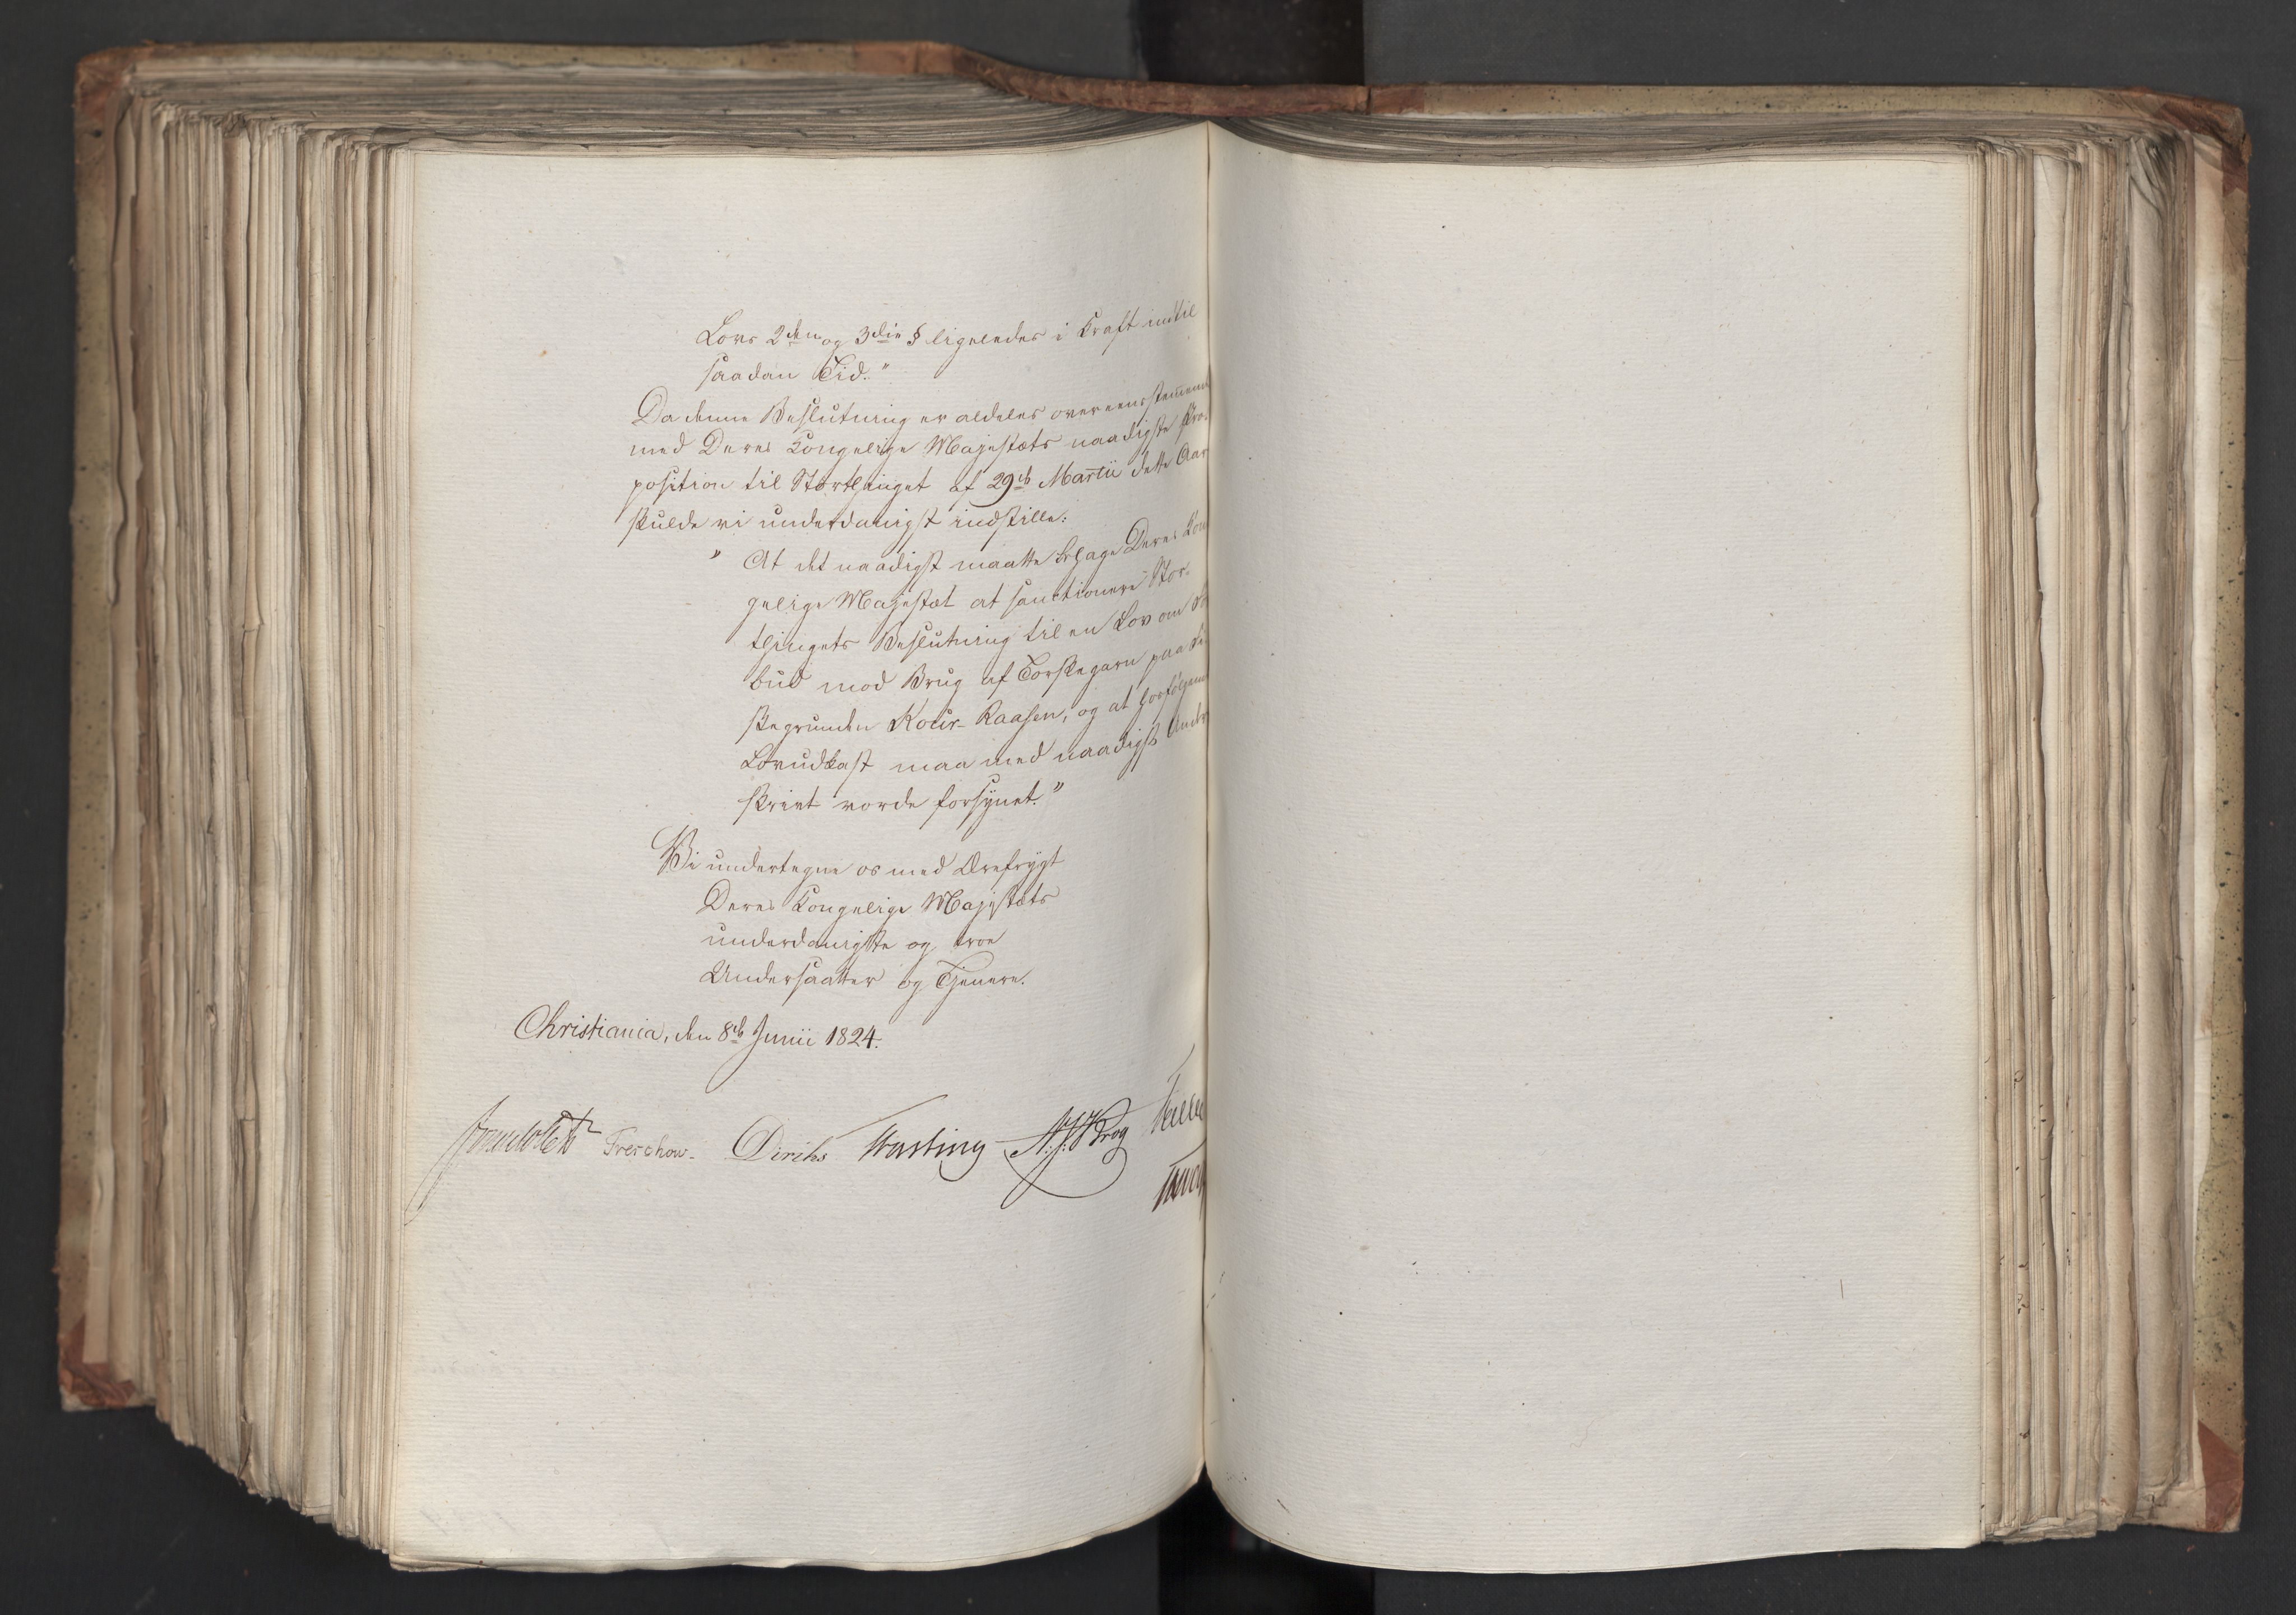 Lovs 2den og 3die § ligeledes i Kraft indtil
saadan Tid."
Da denne Beslutning er aldeles overeensstemmen
med Deres Kongelige Majestæts naadigste Pro-
position til Storthinget af 29de Martii dette Aar
skulde vi underdanigst indstille:
" At det naadigst maatte behage Deres Kon
gelige Majestæt at sanctionere Stor-
thingets Beslutning til en Lov om For
bud mod Brug af Torskegarn paa Fi-
skegrunden Rour-Raasen, og at hosfølgende
Lovudkast maa med naadigst Under
skrivt vorde forsynet."
Vi undertegne os med Ærefrygt
Deres Kongelige Majestæts
underdanigste og troe
Undersaatter og Tjenere.
Christiania, den 8de Junii 1824.
Treschow. Diriks Fasting N. J. Krog